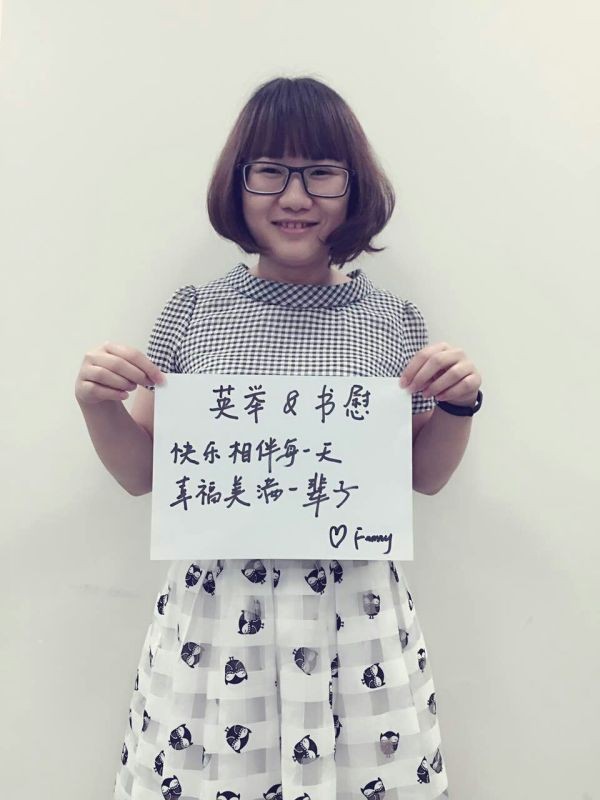 英举 & 书慰
快乐相伴每一天
幸福美满一辈子
♡ Fanny